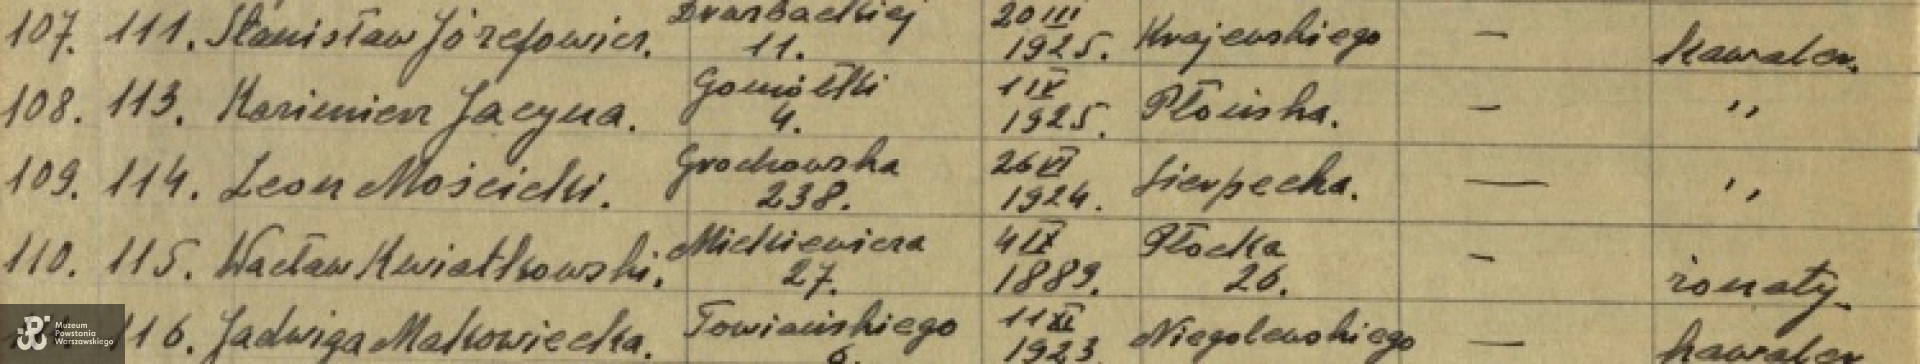 107. 111. Stanisław Józefowicz. Dwarbackiej 11. 20 III 1925. Krajewskiego — kawaler.
108. 113. Kazimierz Jacyna. Gomółki 4. 1 IV 1925. Płońska. — ,,
109. 114. Leon Mościcki. Grochowska 238. 26 VI 1924. Sierpecka. — ,,
110. 115. Wacław Kwiatkowski. Mickiewicza 27. 4 IX 1889. Płocka 26. — żonaty.
116. Jadwiga Makowiecka. Towiańskiego 6. 11 XI 1923. Niegolewskiego — kawaler
Muzeum
Powstania
Warszawskiego